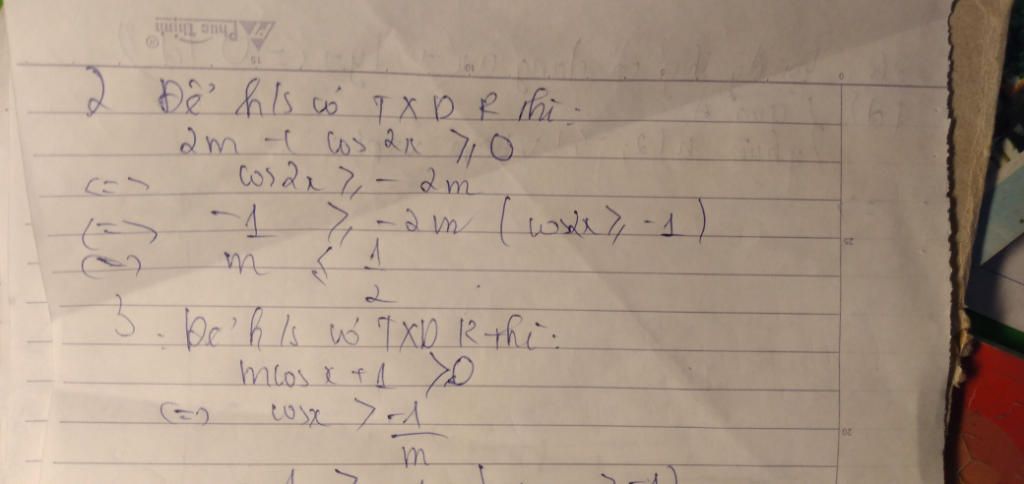 Phúc Thịnh ®
2 Để h/s có TXD R thì:
2m + cos2x ≥ 0
<=> cos2x ≥ - 2m
<=> -1 ≥ -2m (cos2x ≥ -1)
<=> m ≤ 1/2
3. Để h/s có TXD R thì:
mcosx + 1 > 0
<=> cosx > -1/m